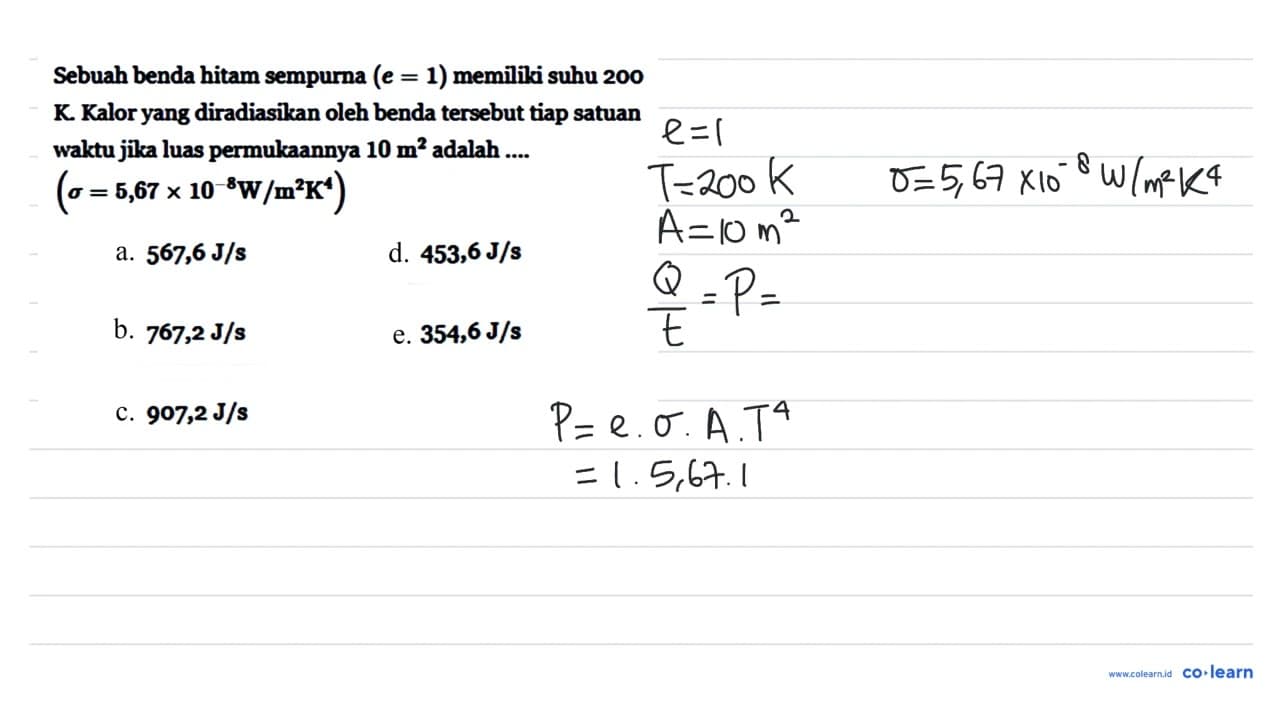 Sebuah benda hitam sempurna (e = 1) memiliki suhu 200
K. Kalor yang diradiasikan oleh benda tersebut tiap satuan
waktu jika luas permukaannya 10 m² adalah ....
(σ = 5,67 × 10⁻⁸W/m²K⁴)
a. 567,6 J/s
d. 453,6 J/s
b. 767,2 J/s
e. 354,6 J/s
c. 907,2 J/s
e=1
T=200 K
σ=5,67 ×10⁻⁸ W/m²K⁴
A=10 m²
Q/t = P =
P= e . σ . A . T⁴
= 1 . 5,67 . 1
www.colearn.id
co·learn